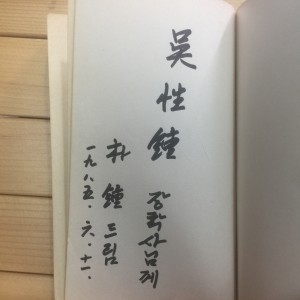 吳性鍾
장학사님께
朴鍾 드림
一九八五. 六. 十一.